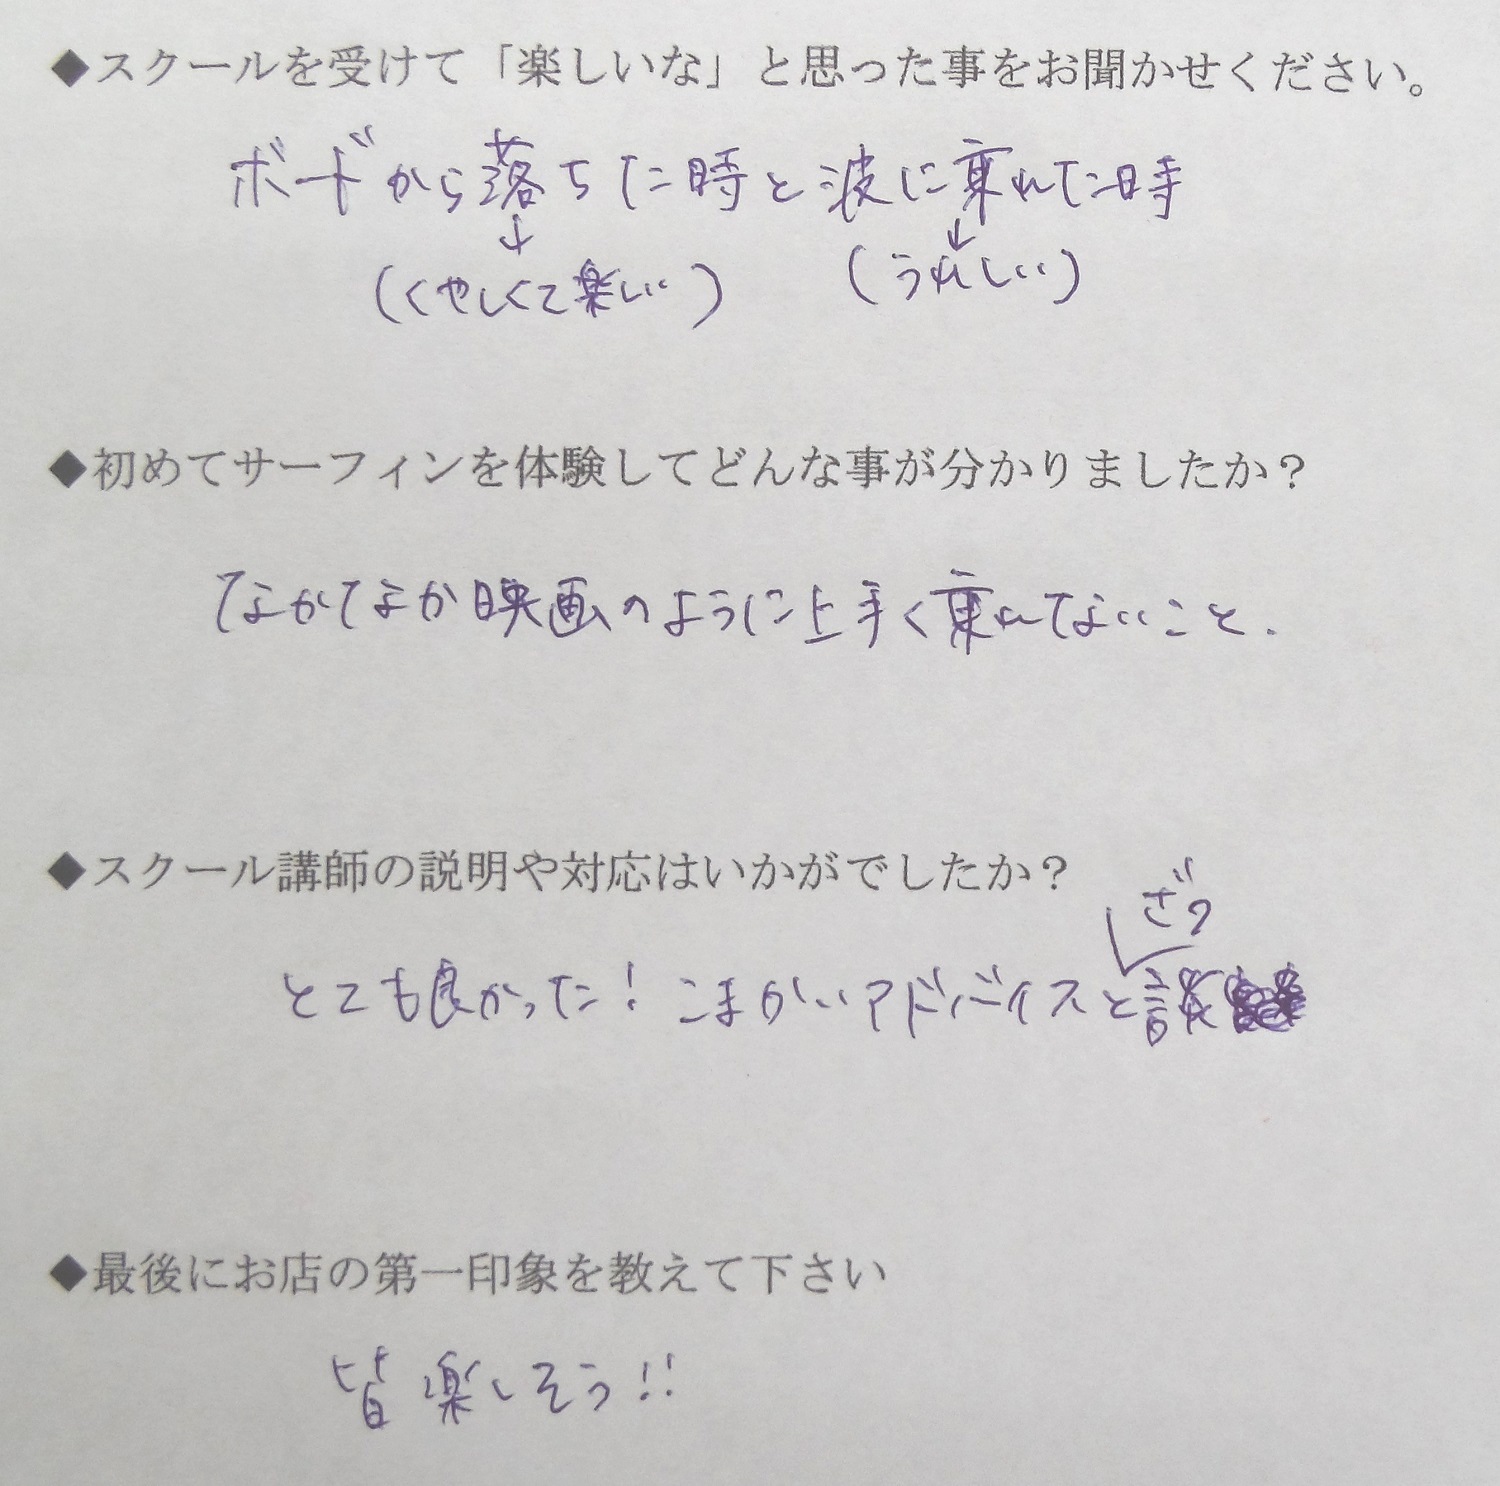 ◆スクールを受けて「楽しいな」と思った事をお聞かせください。
ボードから落ちた時と波に乗れた時
↓ ↓
(くやしくて楽しい) (うれしい)
◆初めてサーフィンを体験してどんな事が分かりましたか？
なかなか映画のように上手く乗れてないこと.
◆スクール講師の説明や対応はいかがでしたか？
ざつ
とても良かった！こまかいアドバイスと談
◆最後にお店の第一印象を教えて下さい
皆楽しそう!!